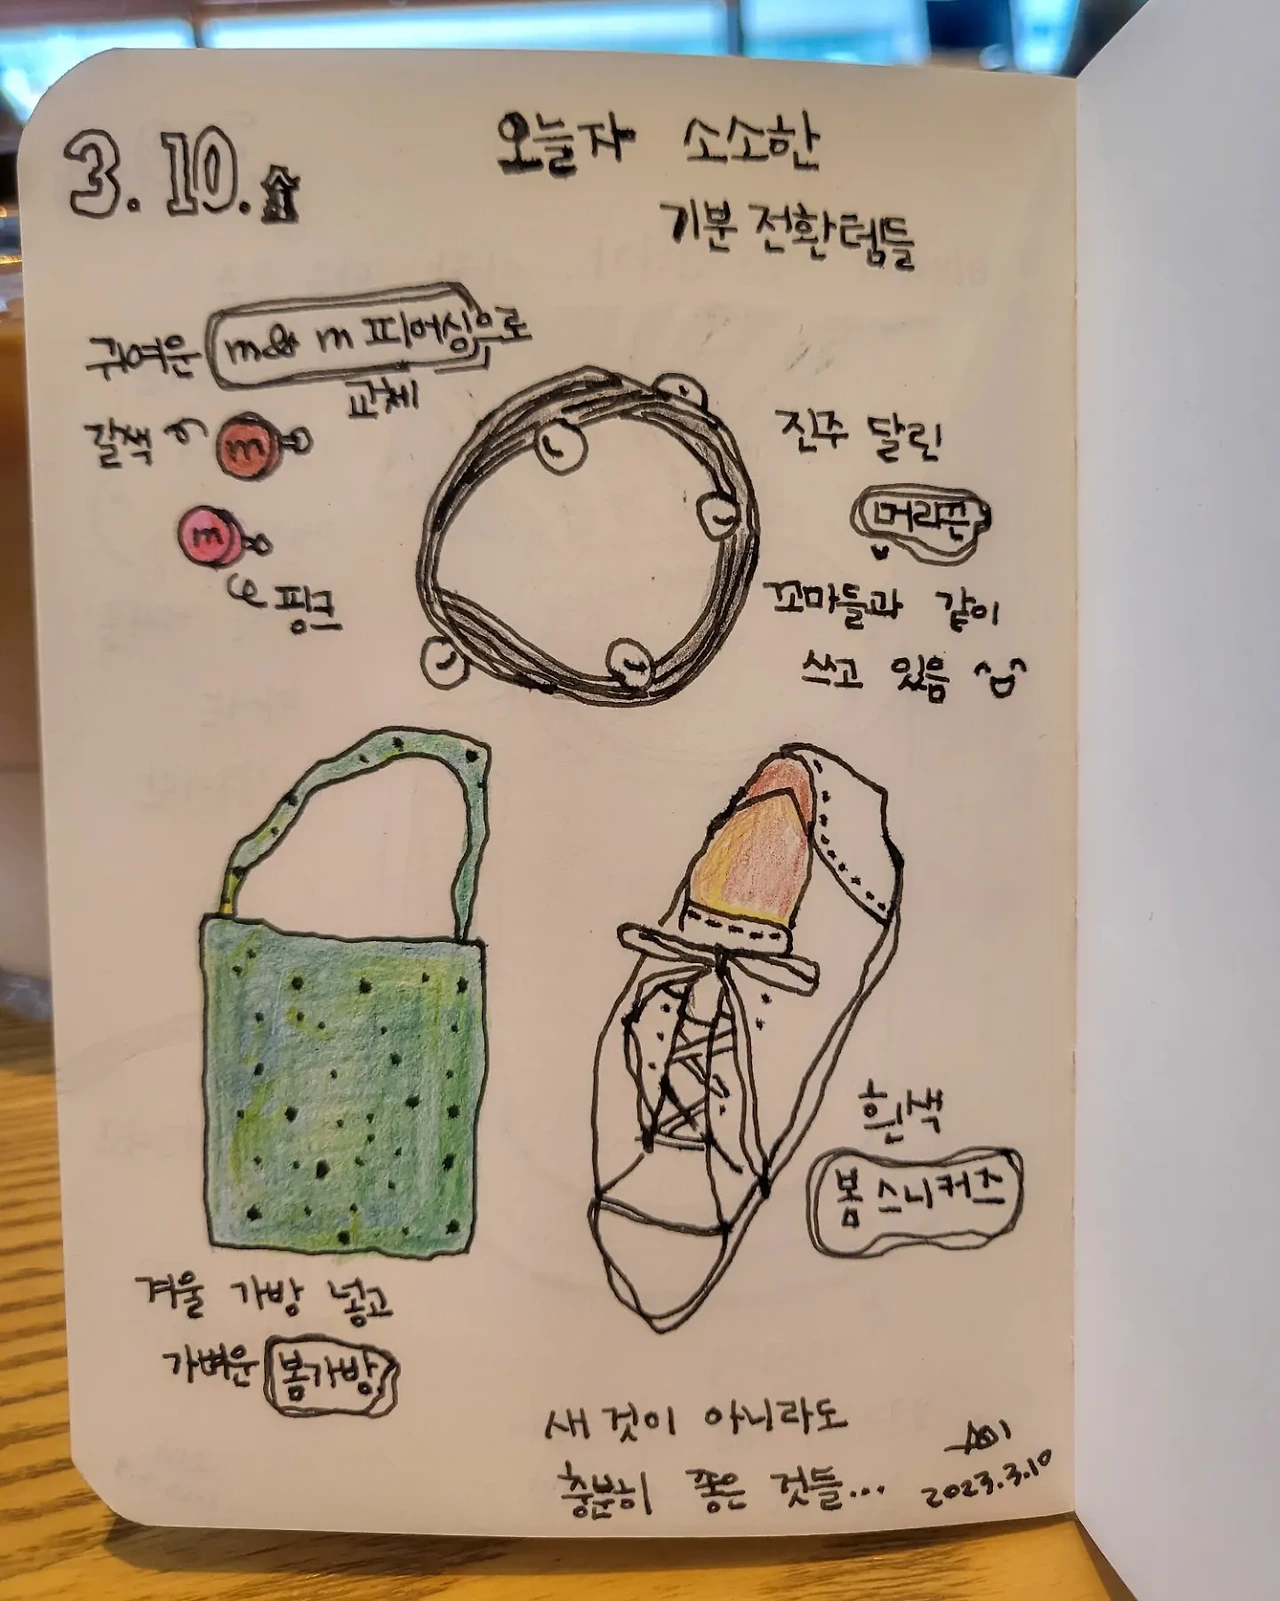 3. 10. 금
오늘자 소소한
기분 전환템들
귀여운 m&m 피어싱으로
교체
갈색
m
m
핑크
진주 달린
머리끈
꼬마들과 같이
쓰고 있음
겨울 가방 넣고
가벼운 봄가방
흰색
봄 스니커즈
새 것이 아니라도
충분히 좋은 것들...
2023.3.10